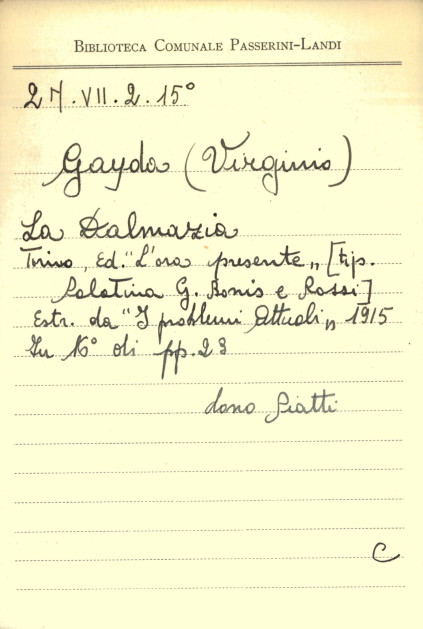 BIBLIOTECA COMUNALE PASSERINI-LANDI
2 H.VII.2.15°
Gayda (Virginio)
La Dalmazia
Torino, Ed. "L'ora presente„ [tip.
Palatina G. Bonis e Rossi]
Estr. da "I problemi Attuali„ 1915
In 16° di pp. 23
dono Piatti
C